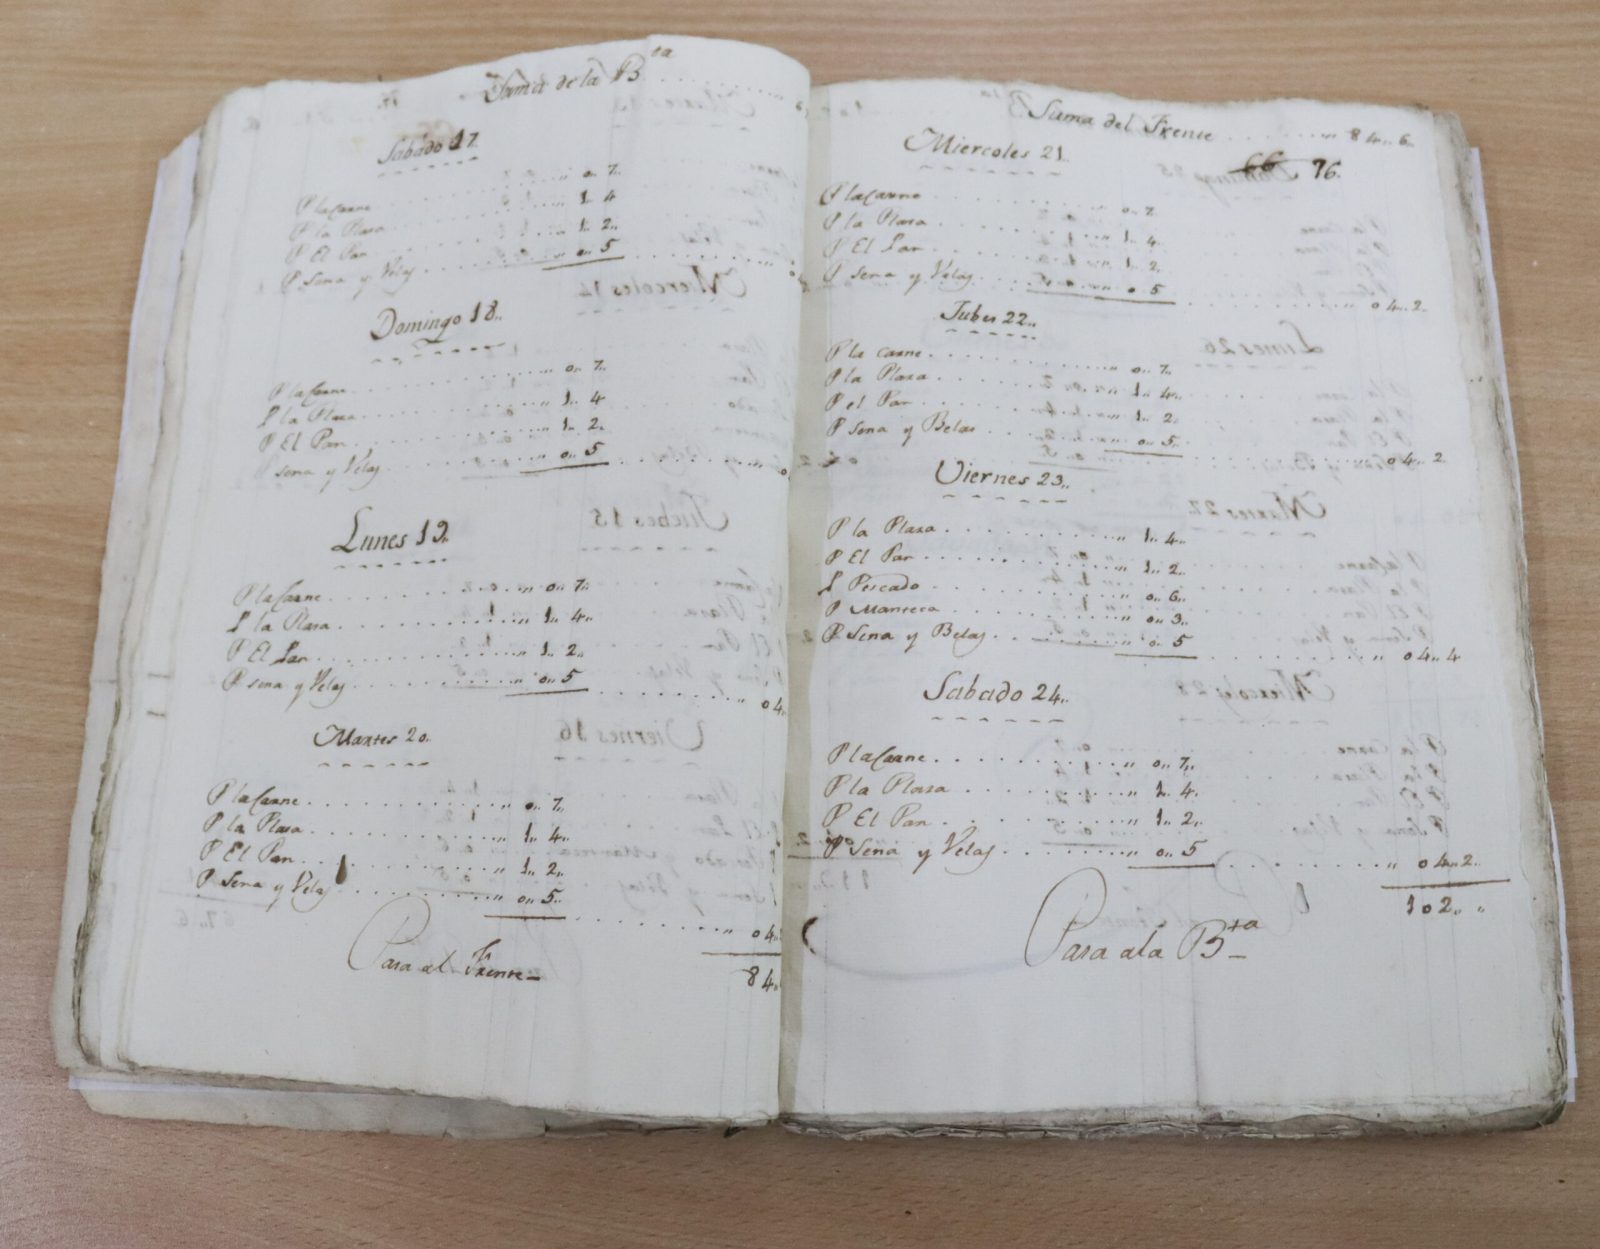 Suma de la Bta
Sabado 17.
P la Carne 0,, 7,,
P la Plasa 1,, 4
P El Pan 1,, 2,,
P Sena y Velas 0,, 5
Domingo 18,,
P la Carne 0,, 7,,
P la Plasa 1,, 4
P El Pan 1,, 2,,
P sena y Velas 0,, 5
Lunes 19,,
P la Carne 0,, 7,,
P la Plasa 1,, 4,,
P El Pan 1,, 2,,
P sena y Velas 0,, 5
04,,
Martes 20.
P la Carne 0,, 7,,
P la Plasa 1,, 4,,
P El Pan 1,, 2,,
P Sena y Velas 0,, 5,,
04
Pasa al Frente
84,,
Suma del Frente 84,, 6,,
76.
Miercoles 21,,
P la Carne 0,, 7
P la Plasa 1,, 4,,
P El Pan 1,, 2,,
P sena y Velas 0,, 5
04,, 2,,
Jubes 22,,
P la carne 0,, 7,,
P la Plaza 1,, 4,,
P el Pan 1,, 2,,
P Sena y Belas 0,, 5,,
04,, 2,,
Viernes 23,,
P la Plaza 1,, 4,,
P El Pan 1,, 2,,
P Pescado 0,, 6,,
P Manteca 0,, 3,,
P Sena y Belas 0,, 5
04,, 4
Sabado 24,,
P la Carne 0,, 7,,
P la Plasa 1,, 4,,
P El Pan 1,, 2,,
P Sena y Velas 0,, 5
04,, 2,,
102,, ,,
Pasa ala Bta